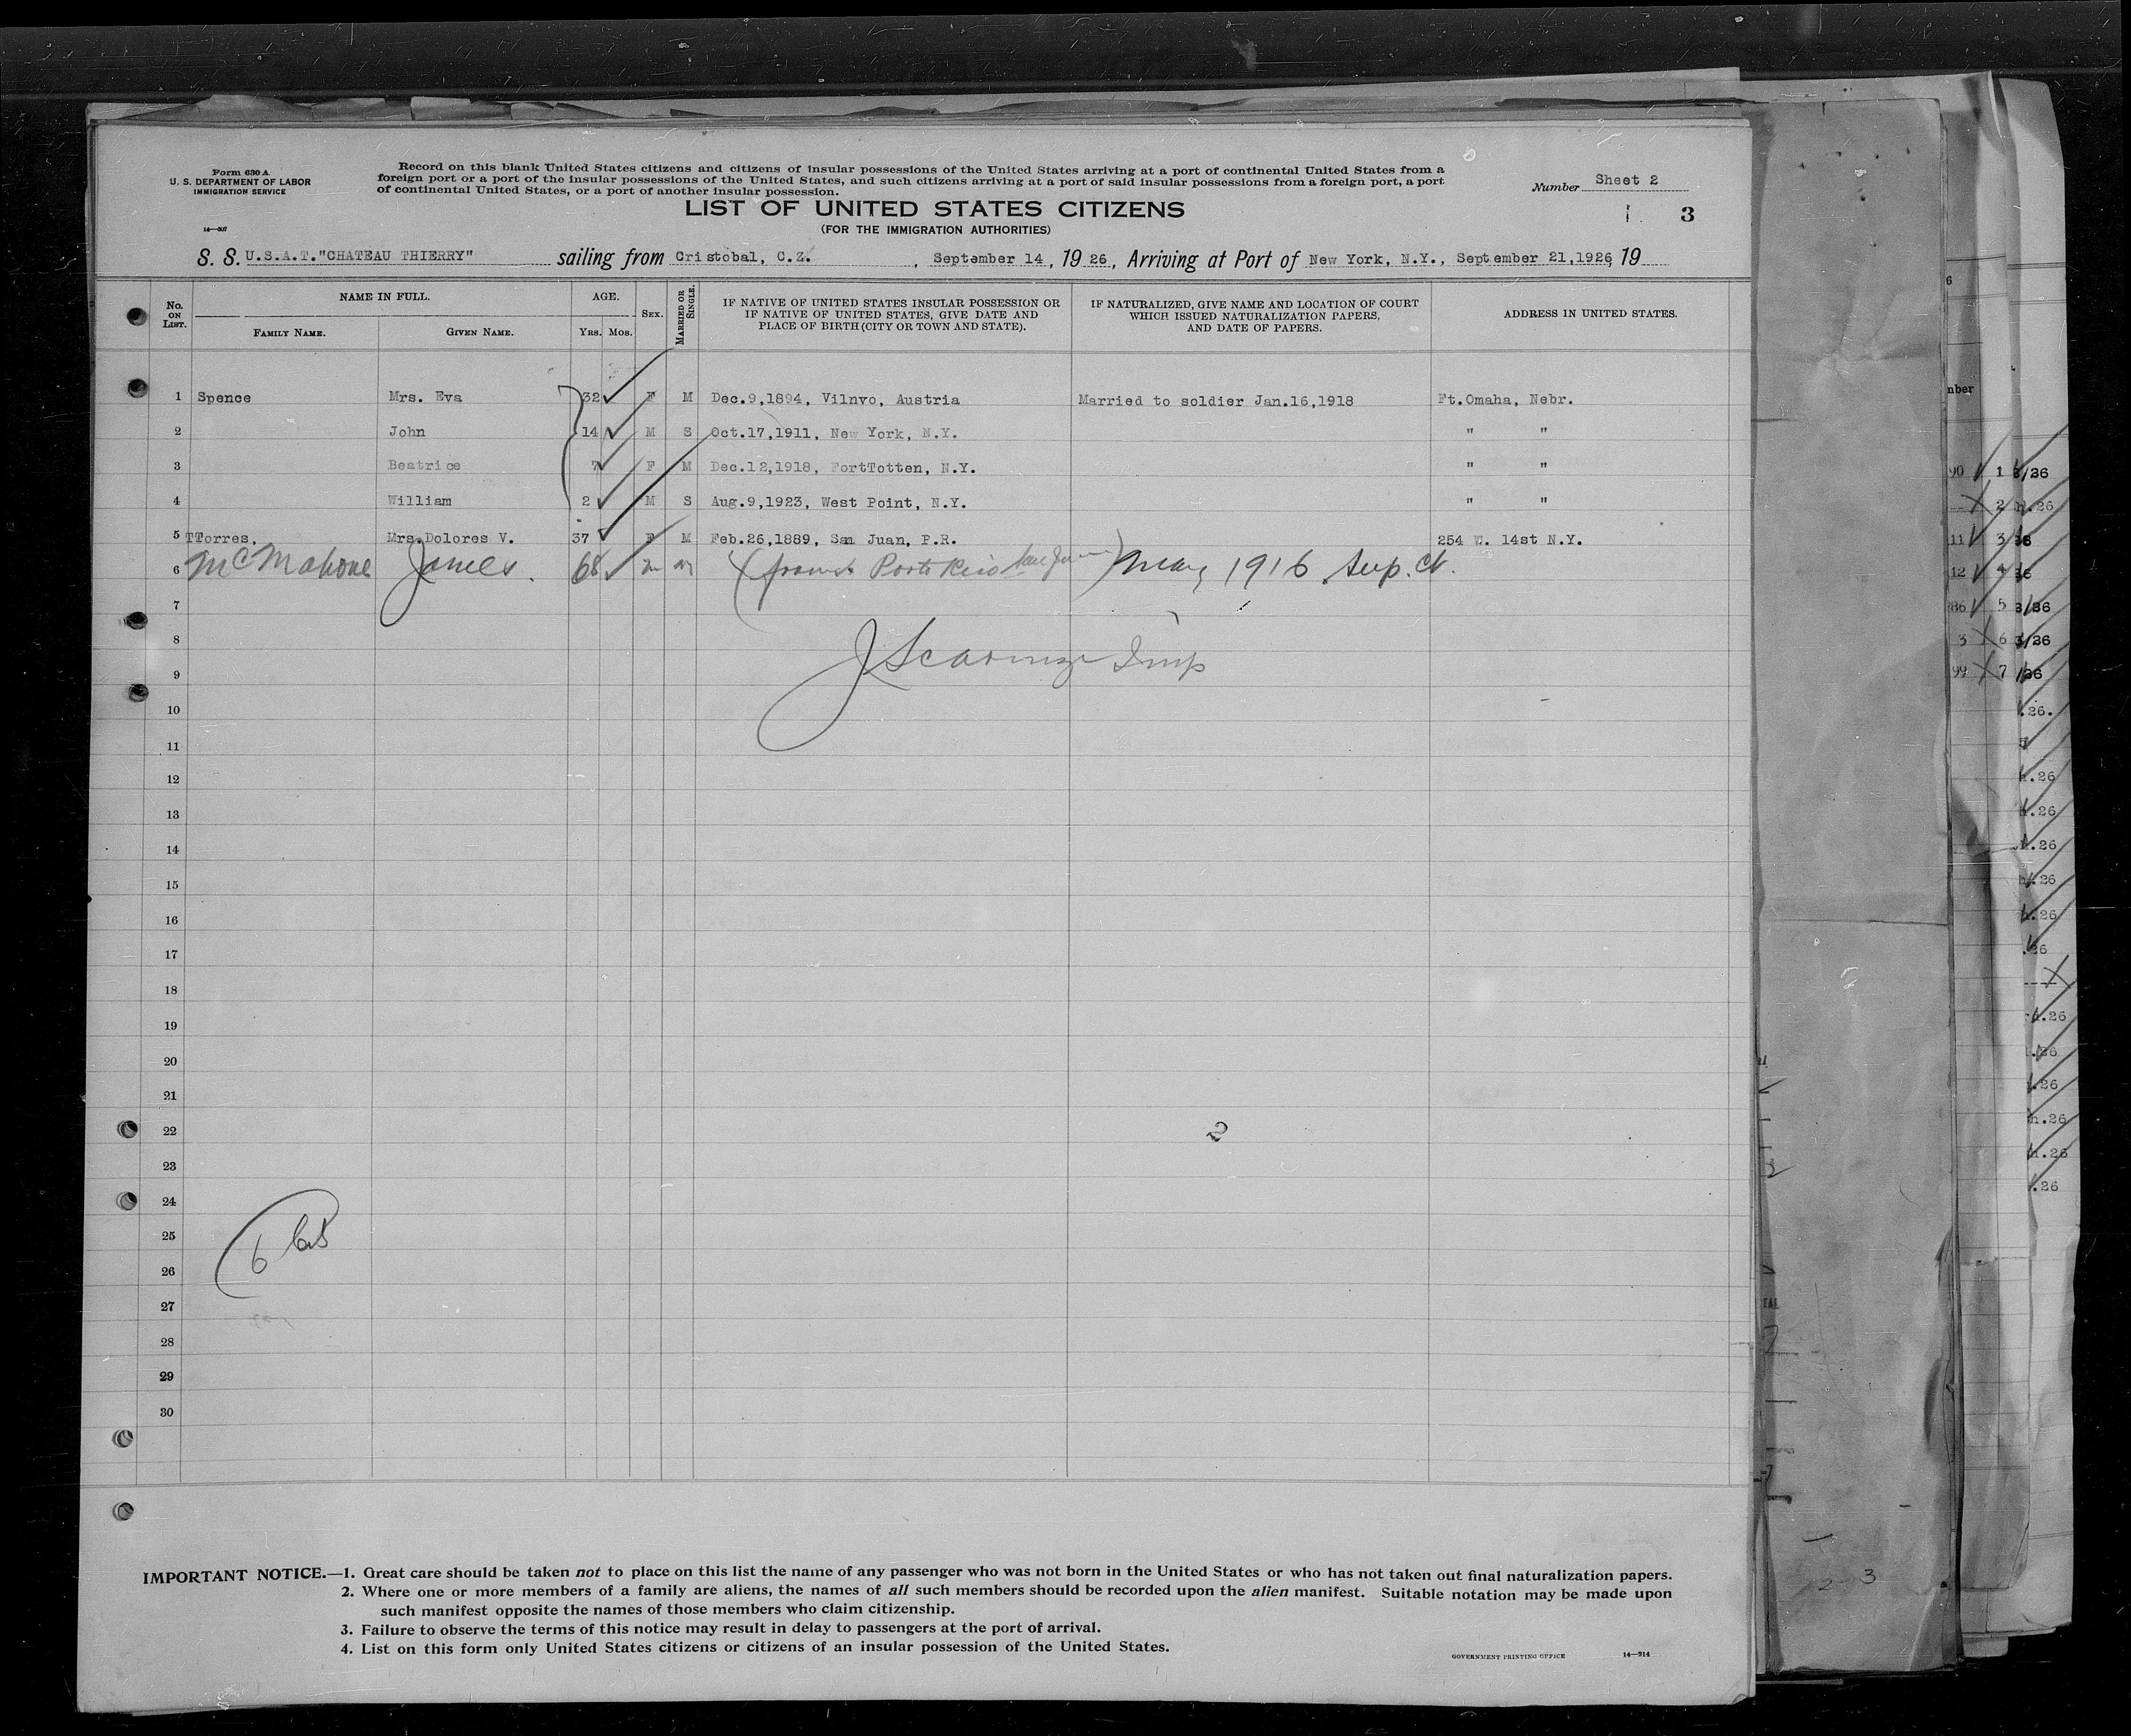 Form 630 A
U. S. DEPARTMENT OF LABOR
IMMIGRATION SERVICE
14—207
Record on this blank United States citizens and citizens of insular possessions of the United States arriving at a port of continental United States from a
foreign port or a port of the insular possessions of the United States, and such citizens arriving at a port of said insular possessions from a foreign port, a port
of continental United States, or a port of another insular possession.
Number Sheet 2
3
LIST OF UNITED STATES CITIZENS
(FOR THE IMMIGRATION AUTHORITIES)
S. S. U.S.A.T."CHATEAU THIERRY" sailing from Cristobal, C.Z. , September 14, 19 26, Arriving at Port of New York, N.Y., September 21,1926, 19
No. ON LIST. NAME IN FULL. AGE. SEX. MARRIED OR SINGLE. IF NATIVE OF UNITED STATES INSULAR POSSESSION OR IF NATIVE OF UNITED STATES, GIVE DATE AND PLACE OF BIRTH (CITY OR TOWN AND STATE). IF NATURALIZED, GIVE NAME AND LOCATION OF COURT WHICH ISSUED NATURALIZATION PAPERS, AND DATE OF PAPERS. ADDRESS IN UNITED STATES.
FAMILY NAME. GIVEN NAME. Yrs. Mos.
1 Spence Mrs. Eva 32 F M Dec.9,1894, Vilnvo, Austria Married to soldier Jan.16,1918 Ft.Omaha, Nebr.
2 John 14 M S Oct.17,1911, New York, N.Y. " "
3 Beatrice 7 F M Dec.12,1918, FortTotten, N.Y. " "
4 William 2 M S Aug.9,1923, West Point, N.Y. " "
5 TTorres, Mrs.Dolores V. 37 F M Feb.26,1889, San Juan, P.R. 254 W. 14st N.Y.
6 McMahone James. 68 m m (from Porto Rico San Juan) May 1916 Sup. Ct.
7
8
9
J Scarinzi Insp
10
11
12
13
14
15
16
17
18
19
20
21
22
2
23
24
25
6
26
27
28
29
30
IMPORTANT NOTICE.—1. Great care should be taken not to place on this list the name of any passenger who was not born in the United States or who has not taken out final naturalization papers.
2. Where one or more members of a family are aliens, the names of all such members should be recorded upon the alien manifest. Suitable notation may be made upon
such manifest opposite the names of those members who claim citizenship.
3. Failure to observe the terms of this notice may result in delay to passengers at the port of arrival.
4. List on this form only United States citizens or citizens of an insular possession of the United States.
GOVERNMENT PRINTING OFFICE 14—214